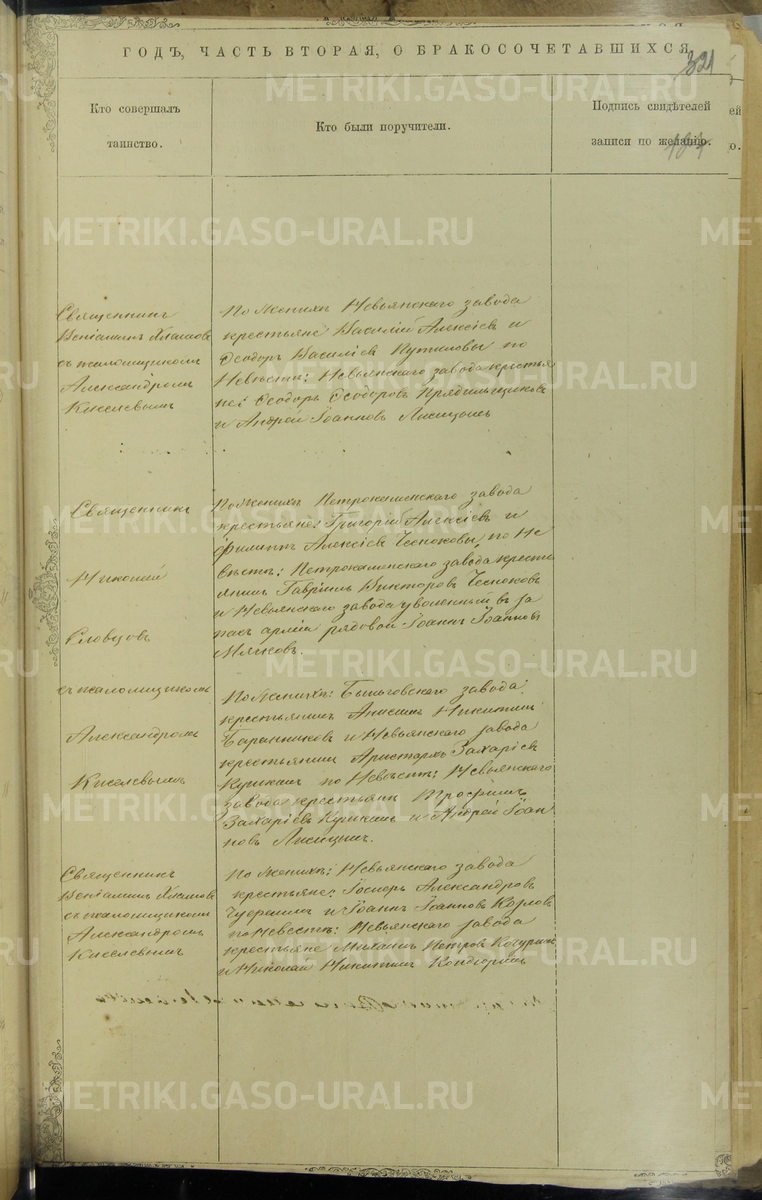 ГОДЪ, ЧАСТЬ ВТОРАЯ, О БРАКОСОЧЕТАВШИХСЯ
321
Кто совершалъ
таинство.
Кто были поручители.
Подпись свидѣтелей
записи по желанію.
Священникъ
Веніаминъ
съ псаломщикомъ
Александромъ
Киселевымъ
По женихѣ Невьянскаго завода
крестьяне Василій Алексіевъ и
Ѳеодоръ Василіевъ Путиловы по
Невѣстѣ: Невьянскаго завода крестья
не: Ѳеодоръ Ѳеодоровъ Прядильщиковъ
и Андрей Іоанновъ Лисицынъ
Священникъ
Николай
Словцовъ
съ псаломщикомъ
Александромъ
Киселевымъ
По женихѣ Петрокаменскаго завода
крестьяне: Григорій Алексіевъ и
Филиппъ Алексіевъ Чесноковы, по Не
вѣстѣ: Петрокаменскаго завода кресть
янинъ Гавріилъ Викторовъ Чесноковъ
и Невьянскаго завода уволенный въ за
пасъ арміи рядовой Іоаннъ Іоанновъ
Мягковъ.
По женихѣ: Быньговскаго завода:
крестьянинъ Анисимъ Никитинъ
Баранниковъ и Невьянскаго завода
крестьянинъ Аристархъ Захаріевъ
по Невѣстѣ: Невьянскаго
завода крестьяне Трофимъ
Захаріевъ и Андрей Іоан
новъ Лисицынъ.
Священникъ
Веніаминъ
съ псаломщикомъ
Александромъ
Киселевымъ
По женихѣ: Невьянскаго завода
крестьяне: Іосифъ Александровъ
и Іоаннъ Іоанновъ Козловъ
по Невѣстѣ: Невьянскаго завода
крестьяне Михаилъ Петровъ
и Николай Никитинъ Кондюринъ
METRIKI.GASO-URAL.RU